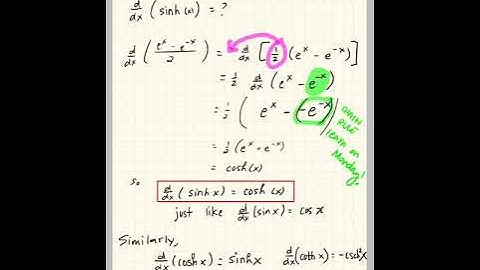 d/dx (sinh(x)) = ?
d/dx ((e^x - e^-x)/2) = d/dx [1/2 (e^x - e^-x)]
= 1/2 d/dx (e^x - e^-x)
= 1/2 (e^x - (-e^-x))
CHAIN RULE learn on Monday!
= 1/2 (e^x + e^-x)
= cosh(x)
so d/dx (sinh x) = cosh(x)
just like d/dx (sin x) = cos x
Similarly,
d/dx (cosh x) = sinh x d/dx (coth x) = -csch²x